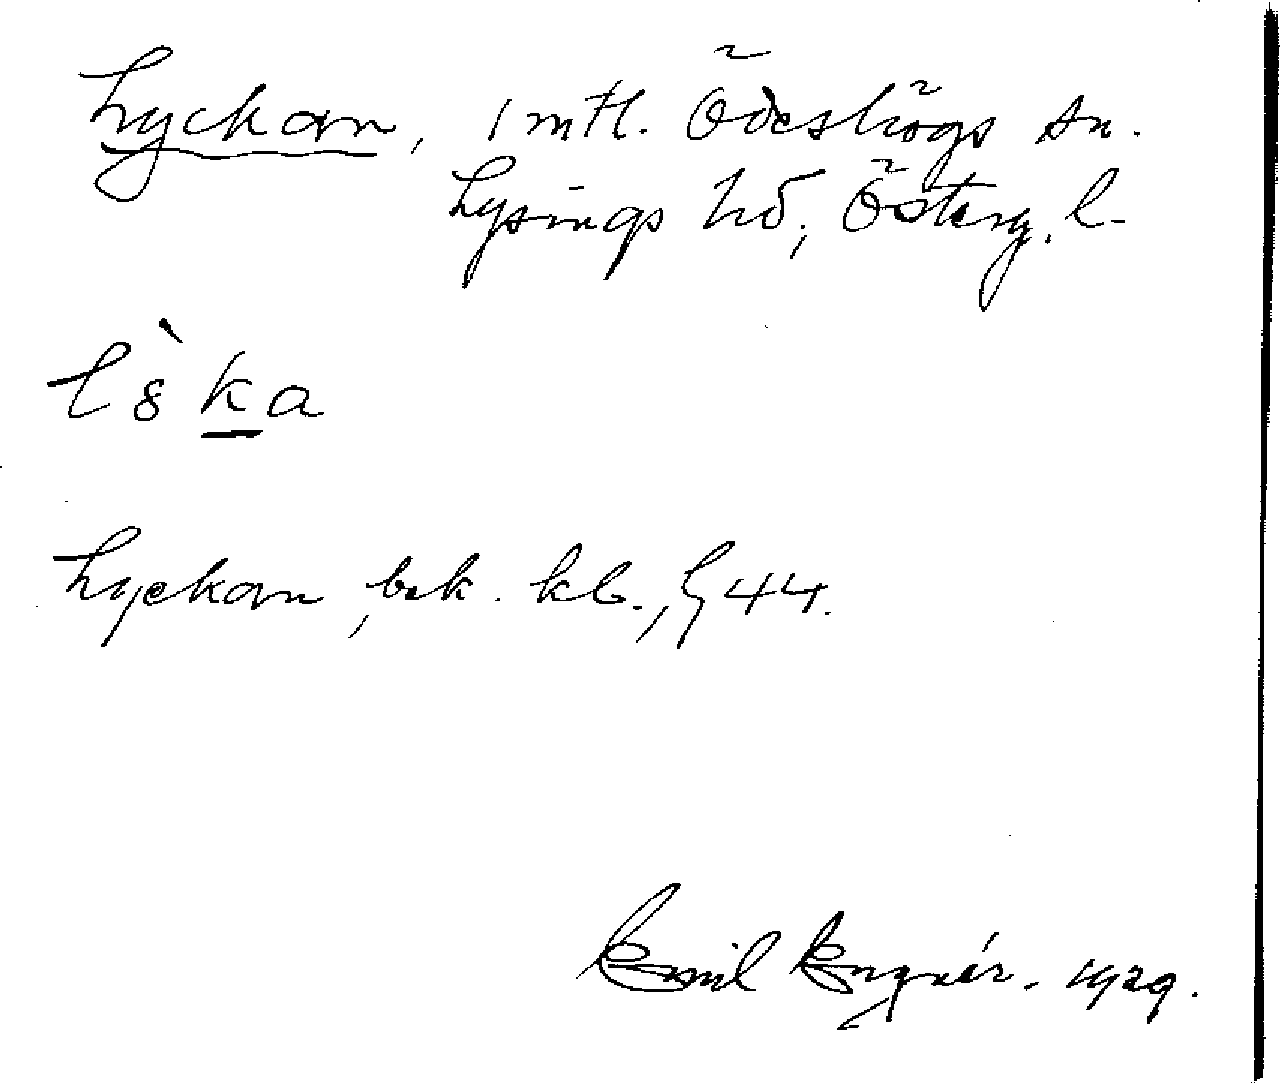 Lyckan, 1 mtl. Ödeshögs sn.
Lysings hd, Österg. l.
l8̀ka
Lyckan, bek. kb., § 44.
Emil Engnér. 1929.